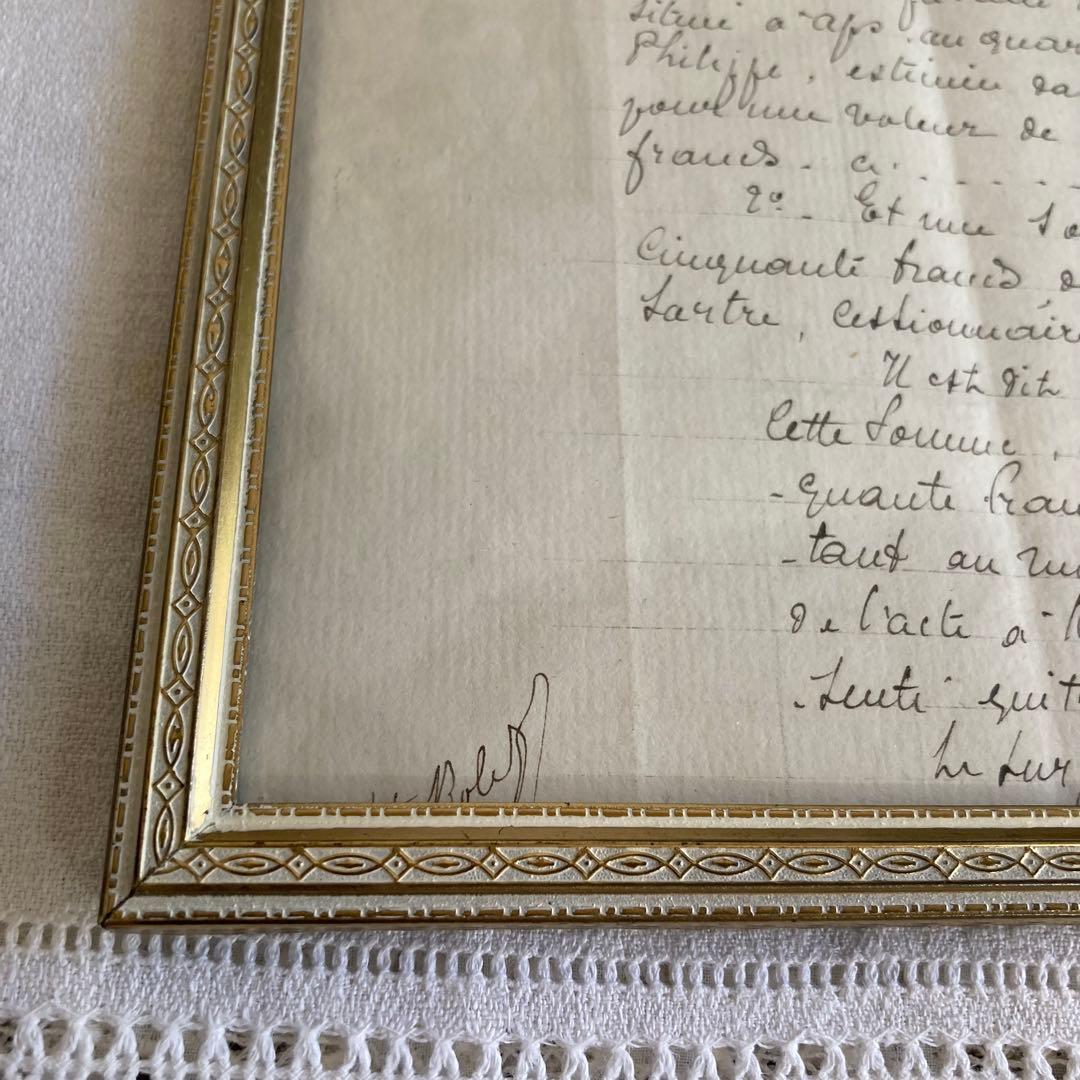 situé à Aps au quar
Philippe, estimée da
pour une valeur de
francs. ci. . . . .
2º. Et une so
Cinquante francs, d
Sartre, cessionnaire
Il est dit
Cette somme,
-quante fran
-tant au
de l'acte à l
.sente quit
Le sur
Robert